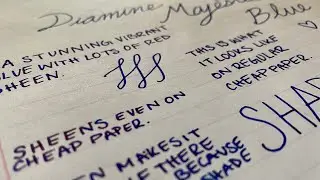 Diamine Majes
Blue
A STUNNING VIBRANT
LUE WITH LOTS OF RED
SHEEN.
THIS IS WHAT
IT LOOKS LIKE
ON REGULAR
CHEAP PAPER.
SHEENS EVEN ON
CHEAP PAPER.
SHA
EN MAKES IT
IF THERE
BECAUSE
SHADE